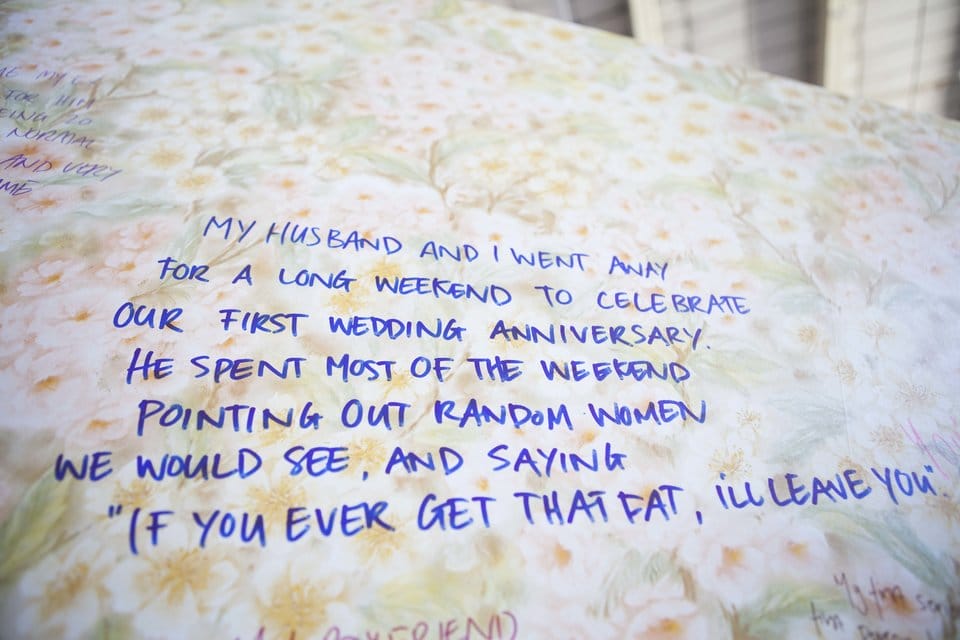 FOR HIM
NORMAL
AND VERY
MY HUSBAND AND I WENT AWAY
FOR A LONG WEEKEND TO CELEBRATE
OUR FIRST WEDDING ANNIVERSARY.
HE SPENT MOST OF THE WEEKEND
POINTING OUT RANDOM WOMEN
WE WOULD SEE, AND SAYING
"IF YOU EVER GET THAT FAT, ILL LEAVE YOU".
BOYFRIEND)